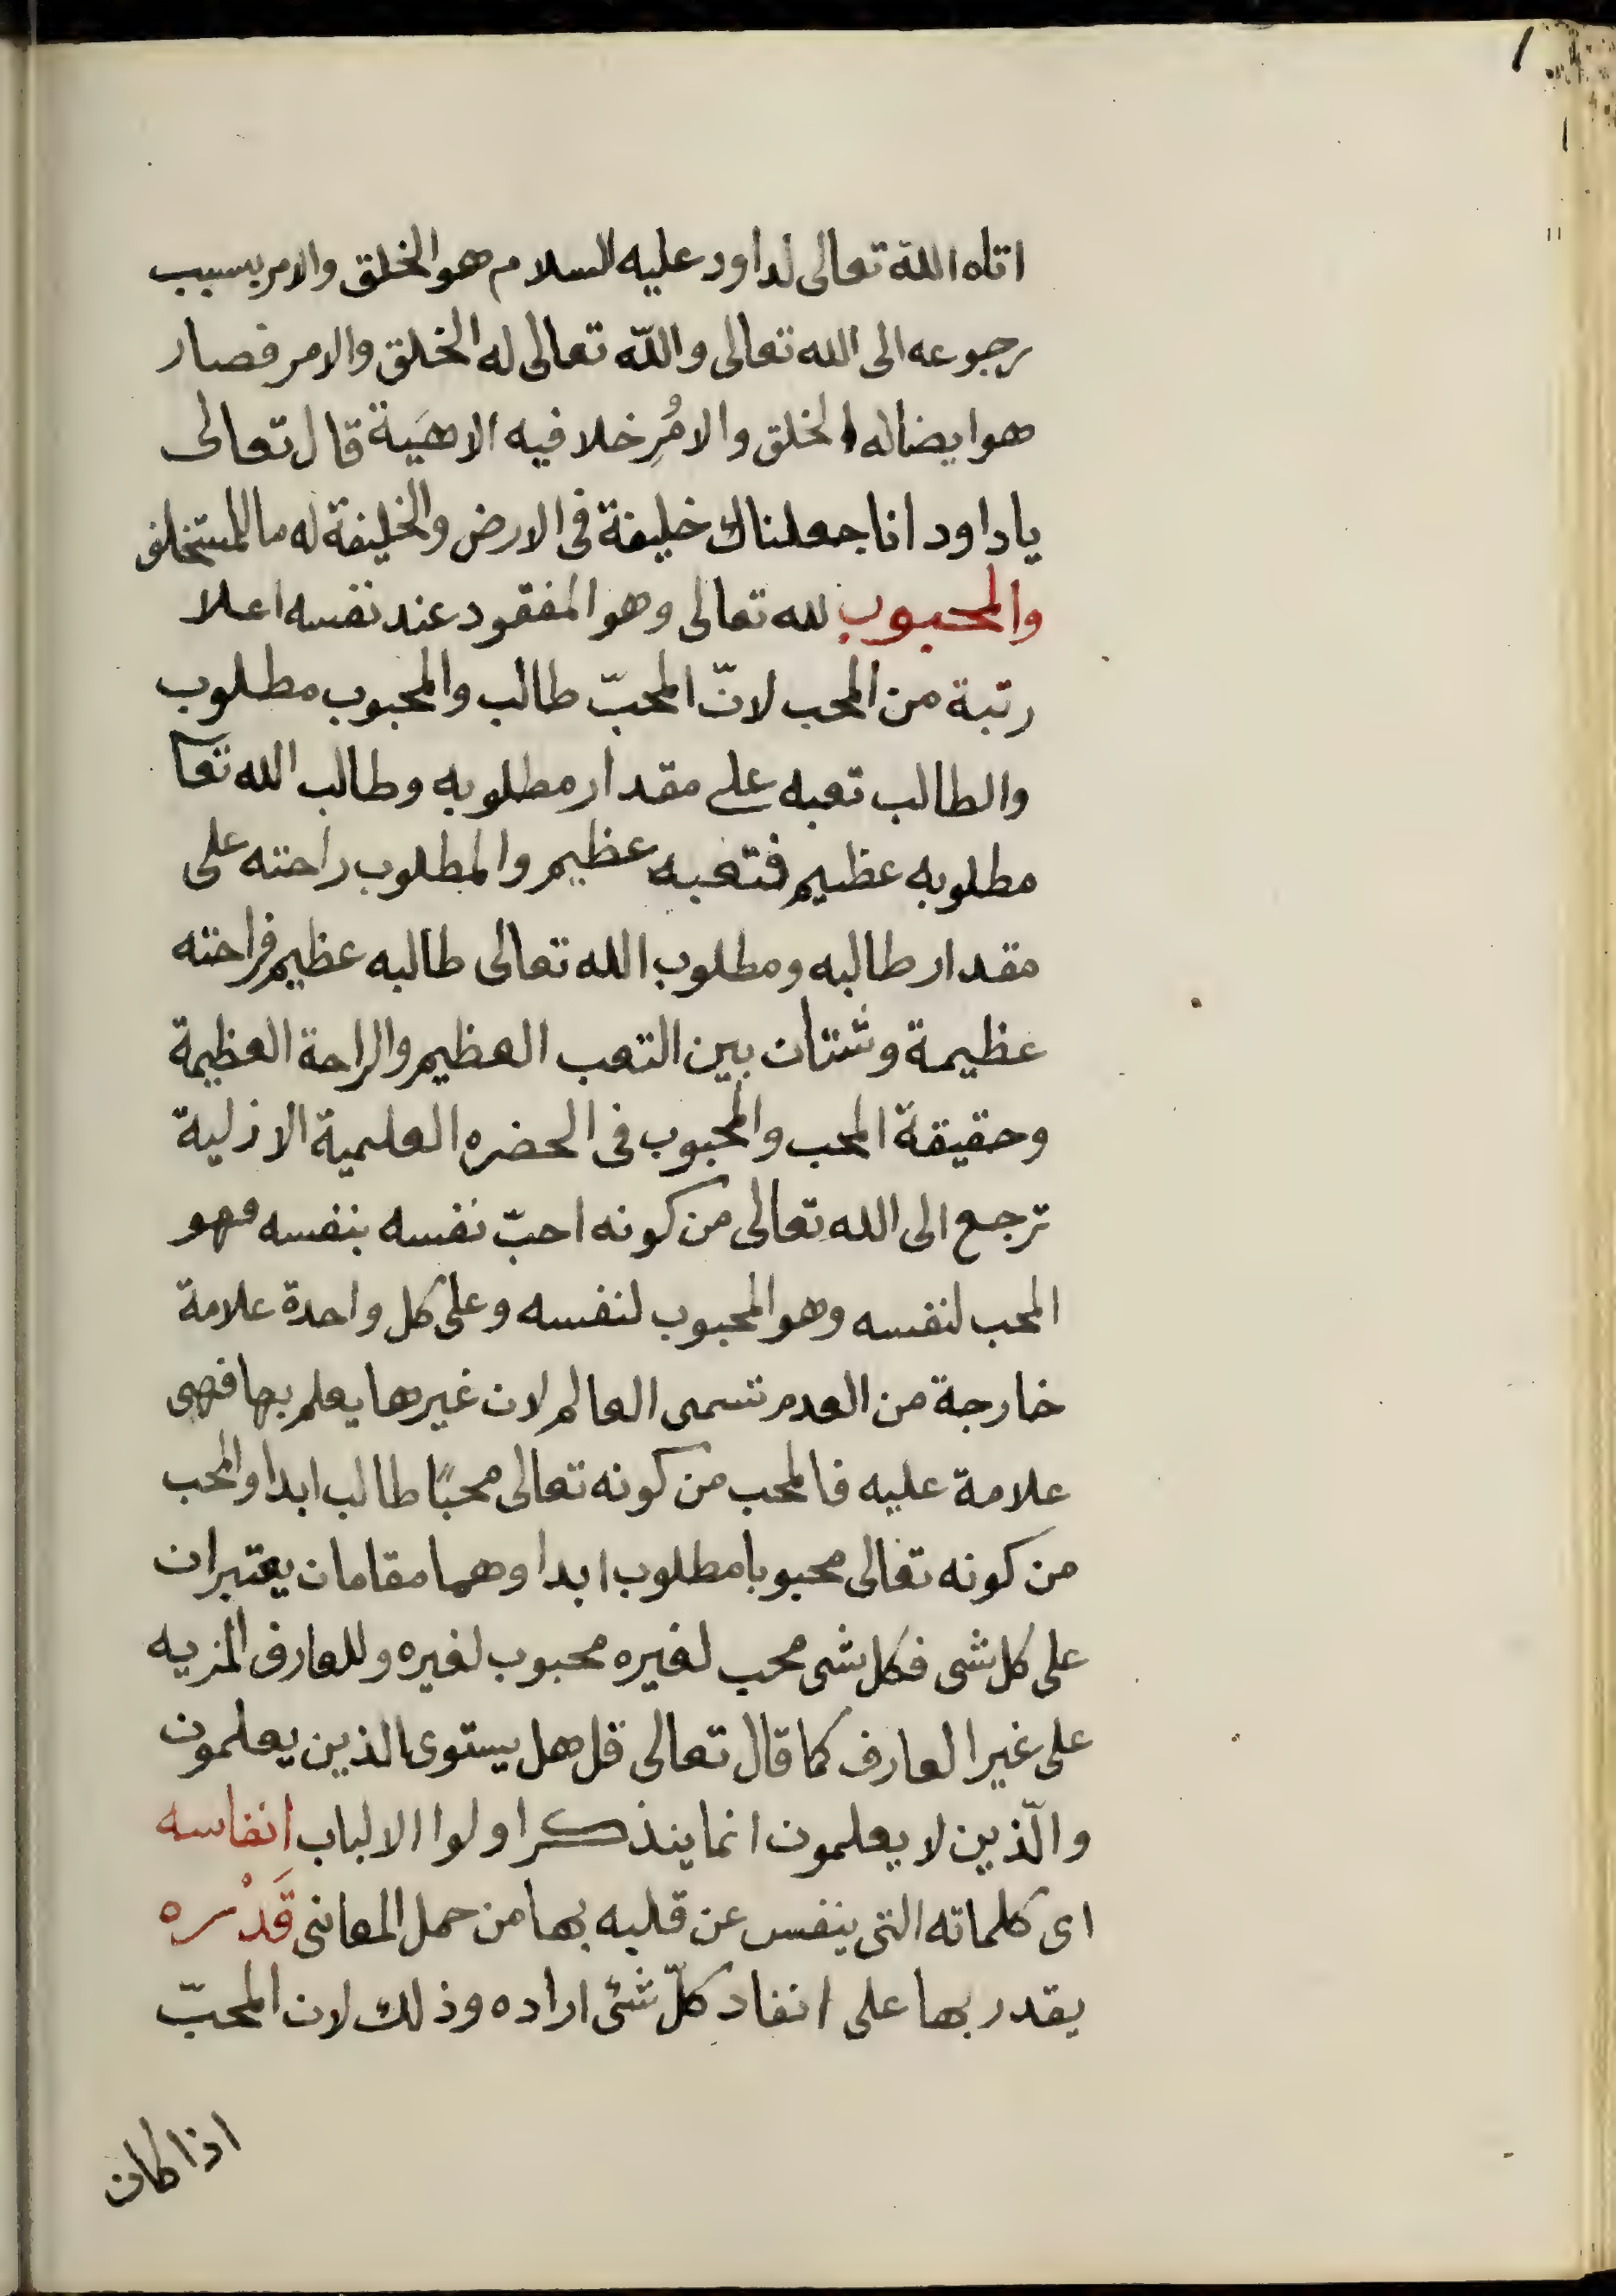 اتاه الله تعالى لداود عليه السلام هو الخلق والامر بسبب
رجوعه الى الله تعالى والله تعالى له الخلق والامر فصار
هو ايضا له الخلق والامُرِ خلا فيه الاهَية قال تعالى
يا داود انا جعلناك خليفة فى الارض والخليفة له ما للمستخلف
والمحبوب لله تعالى وهو المفقود عند نفسه اعلا
رتبة من المحب لانّ المحبّ طالب والمحبوب مطلوب
والطالب تعبه على مقدار مطلوبه وطالب الله تعا
مطلوبه عظيم فتعبه عظيم والمطلوب راحته على
مقدار طالبه ومطلوب الله تعالى طالبه عظيم فراحته
عظيمة وشتان بين التعب العظيم والراحة العظيمة
وحقيقة المحب والمحبوب فى الحضره العلمية الازلية
ترجع الى الله تعالى من كونه احبّ نفسه بنفسه فهو
المحب لنفسه وهو المحبوب لنفسه وعلى كل واحدة علامة
خارجة من العدم تسمى العالم لان غيرها يعلم بها فهى
علامة عليه فالمحب من كونه تعالى محبًا طالب ابدا والمحب
من كونه تعالى محبوبا مطلوب ابدا وهما مقامان يعتبران
على كل شى فكل شى محب لغيره محبوب لغيره وللعارف المزيه
على غير العارف كما قال تعالى قل هل يستوى الذين يعلمون
والّذين لا يعلمون انما يتذكر اولوا الالباب انفاسه
اى كلماته التى ينفس عن قلبه بها من حمل المعانى قَدْره
يقدر بها على انفاد كلّ شئ اراده وذلك لان المحبّ
اذا كان